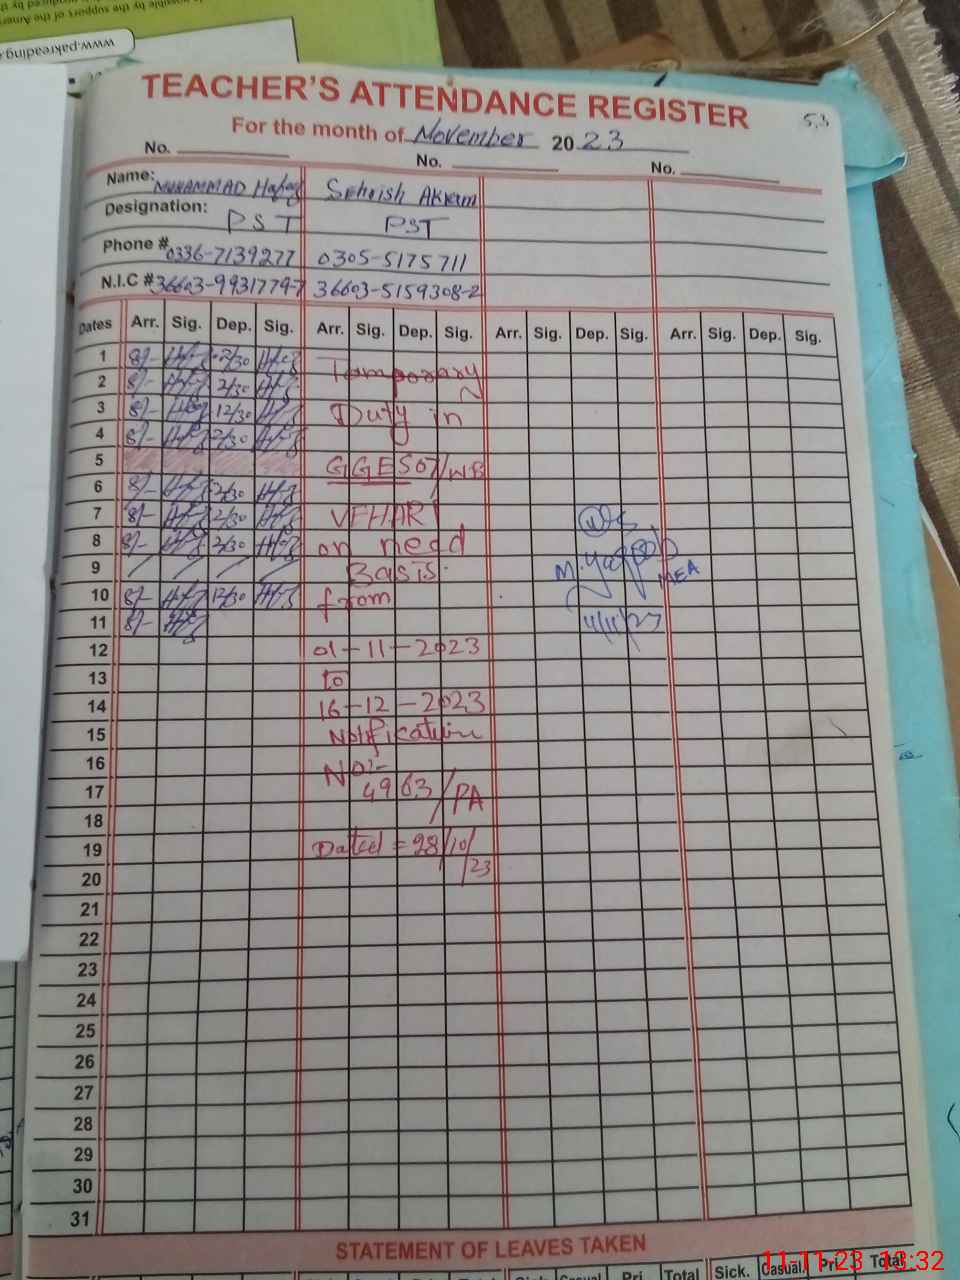 www.pakreading.
TEACHER'S ATTENDANCE REGISTER
53
For the month of November 2023
No. No. No.
Name: MUHAMMAD Hafeez Sehrish Akram
Designation: PST PST
Phone # 0336-7139277 0305-5175711
N.I.C # 36603-9931779-7 36603-5159308-2
Dates Arr. Sig. Dep. Sig. Arr. Sig. Dep. Sig. Arr. Sig. Dep. Sig. Arr. Sig. Dep. Sig.
1 8/- 2/30 Temporary
2 8/- 2/30
3 8/- 12/30 Duty in
4 8/- 2/30
5 GGES 07/WB
6 8/- 2/30
7 8/- 2/30 VEHARI
8 8/- 2/30 on need
9 Basis. M. Yaqoob MEA
10 8/- 12/30 from
11 8/- 11/11/23
12 01-11-2023
13 to
14 16-12-2023
15 Notification
16 NO:-
17 4963/PA
18
19 Dated = 28/10/23
20
21
22
23
24
25
26
27
28
29
30
31
STATEMENT OF LEAVES TAKEN
Pri. Total Sick. Casual. Pri. Total
11-11-23 13:32